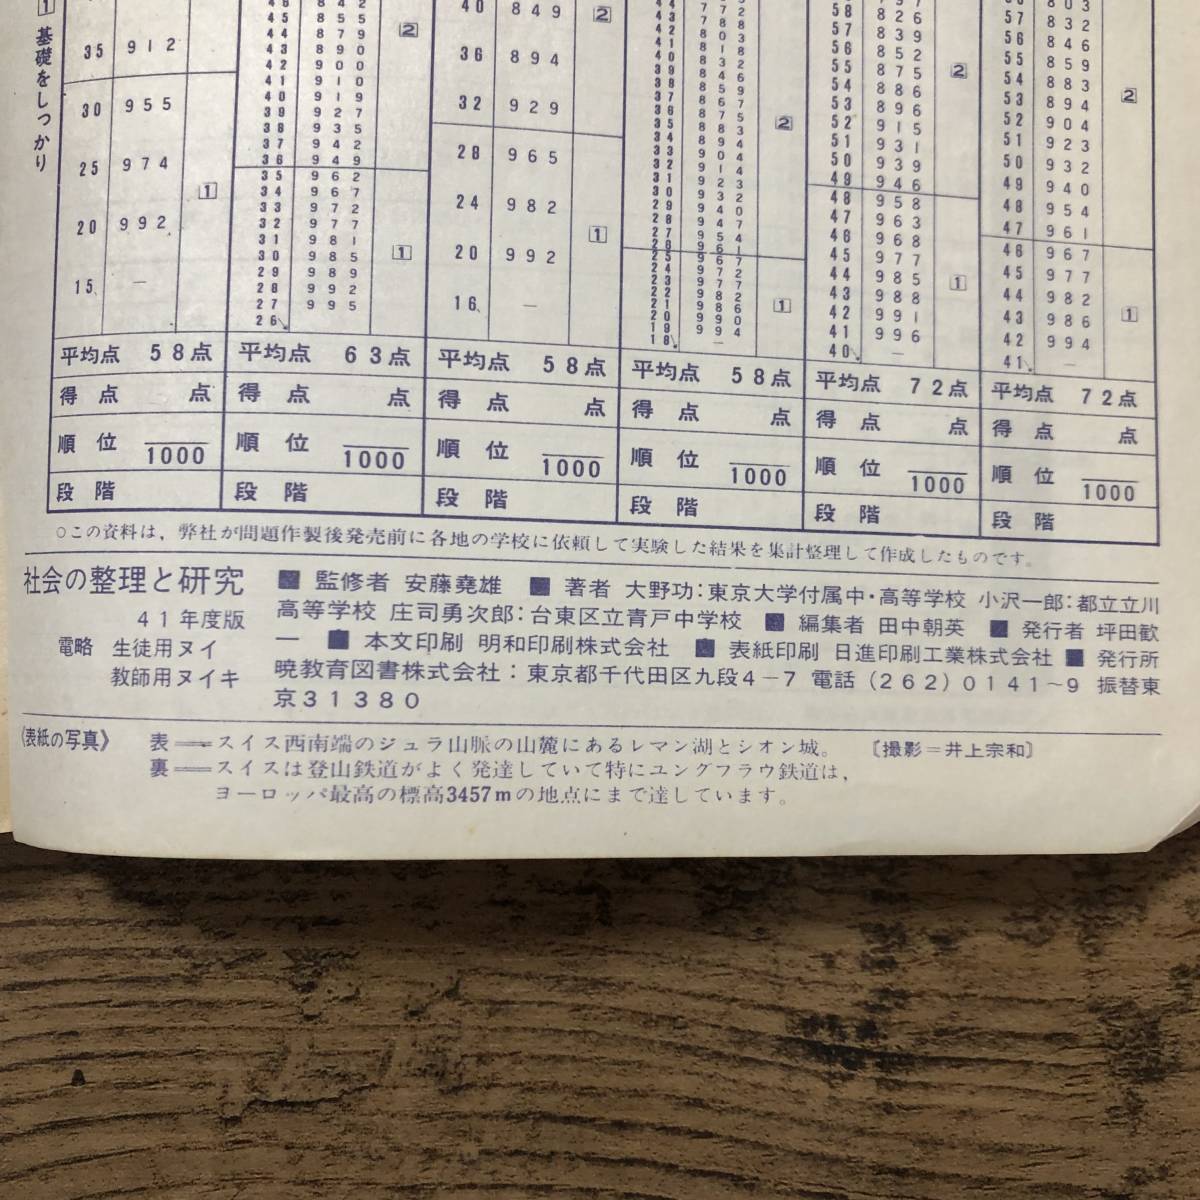 1 基礎をしっかり
35 912
30 955
25 974
20 992
15 —
1
2
35 962
34 967
33 972
32 977
31 981
30 985
29 989
28 992
27 995
26
1
40 849
36 894
32 929
2
28 965
24 982
20 992
16 —
1
2
1
57 839
56 852
55 875
54 886
53 896
52 915
51 931
50 939
49 946
2
48 958
47 963
46 968
45 977
44 985
43 988
42 991
41 996
40 —
1
57 832
56 846
55 859
54 883
53 894
52 904
51 923
50 932
49 940
48 954
47 961
2
46 967
45 977
44 982
43 986
42 994
41 —
1
平均点 58点 平均点 63点 平均点 58点 平均点 58点 平均点 72点 平均点 72点
得点 点 得点 点 得点 点 得点 点 得点 点 得点 点
順位 1000 順位 1000 順位 1000 順位 1000 順位 1000 順位 1000
段階 段階 段階 段階 段階 段階
○この資料は，弊社が問題作製後発売前に各地の学校に依頼して実験した結果を集計整理して作成したものです。
社会の整理と研究
41年度版
電略 生徒用ヌイ
教師用ヌイキ
■ 監修者 安藤堯雄 ■ 著者 大野功：東京大学付属中・高等学校 小沢一郎：都立立川
高等学校 庄司勇次郎：台東区立青戸中学校 ■ 編集者 田中朝英 ■ 発行者 坪田歓
一 ■ 本文印刷 明和印刷株式会社 ■ 表紙印刷 日進印刷工業株式会社 ■ 発行所
暁教育図書株式会社：東京都千代田区九段4－7 電話（262）0141～9 振替東
京31380
《表紙の写真》 表＝スイス西南端のジュラ山脈の山麓にあるレマン湖とシオン城。 〔撮影＝井上宗和〕
裏＝スイスは登山鉄道がよく発達していて特にユングフラウ鉄道は，
ヨーロッパ最高の標高3457mの地点にまで達しています。